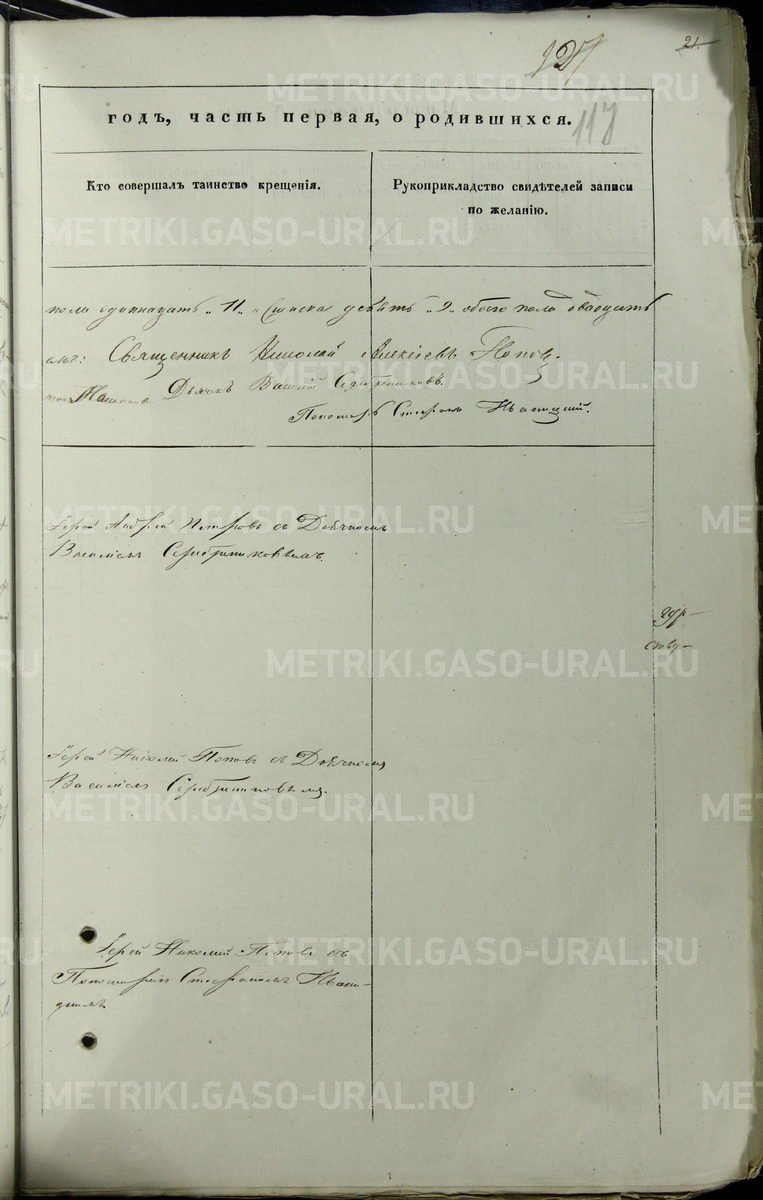 21.
127
годъ, часть первая, о родившихся.
117
Кто совершалъ таинство крещенія.
Рукоприкладство свидѣтелей записи
по желанію.
пола одиннадцать „11„ а женска девять „9„ обоего пола двадцать
Священникъ Николай Алексѣевъ Поповъ.
Дьячикъ Василій Серебренниковъ.
Пономарь Стефанъ
Іерей Андрей Петровъ съ Дьячкомъ
Василіемъ Серебрениковымъ.
ству-
Іерей Николай Поповъ съ Дьячкомъ
Василіемъ Серебрениковымъ.
Іерей Николай Поповъ съ
Пономаремъ Стефаномъ
METRIKI.GASO-URAL.RU